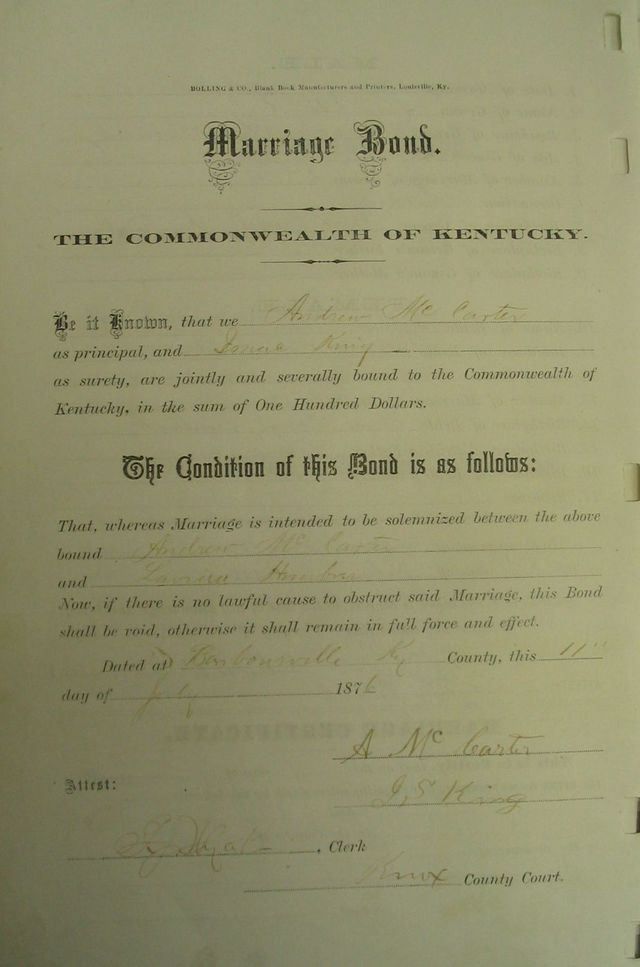 BOLLING & CO., Blank Book Manufacturers and Printers, Louisville, Ky.
Marriage Bond.
THE COMMONWEALTH OF KENTUCKY.
Be it Known, that we Andrew Mc Carter
as principal, and King
as surety, are jointly and severally bound to the Commonwealth of
Kentucky, in the sum of One Hundred Dollars.
The Condition of this Bond is as follows:
That, whereas Marriage is intended to be solemnized between the above
bound Andrew Mc Carter
and
Now, if there is no lawful cause to obstruct said Marriage, this Bond
shall be void, otherwise it shall remain in full force and effect.
Dated at Barbourville Ky County, this 11th
day of July 1876
A Mc Carter
Attest:
J S King
, Clerk
Knox County Court.